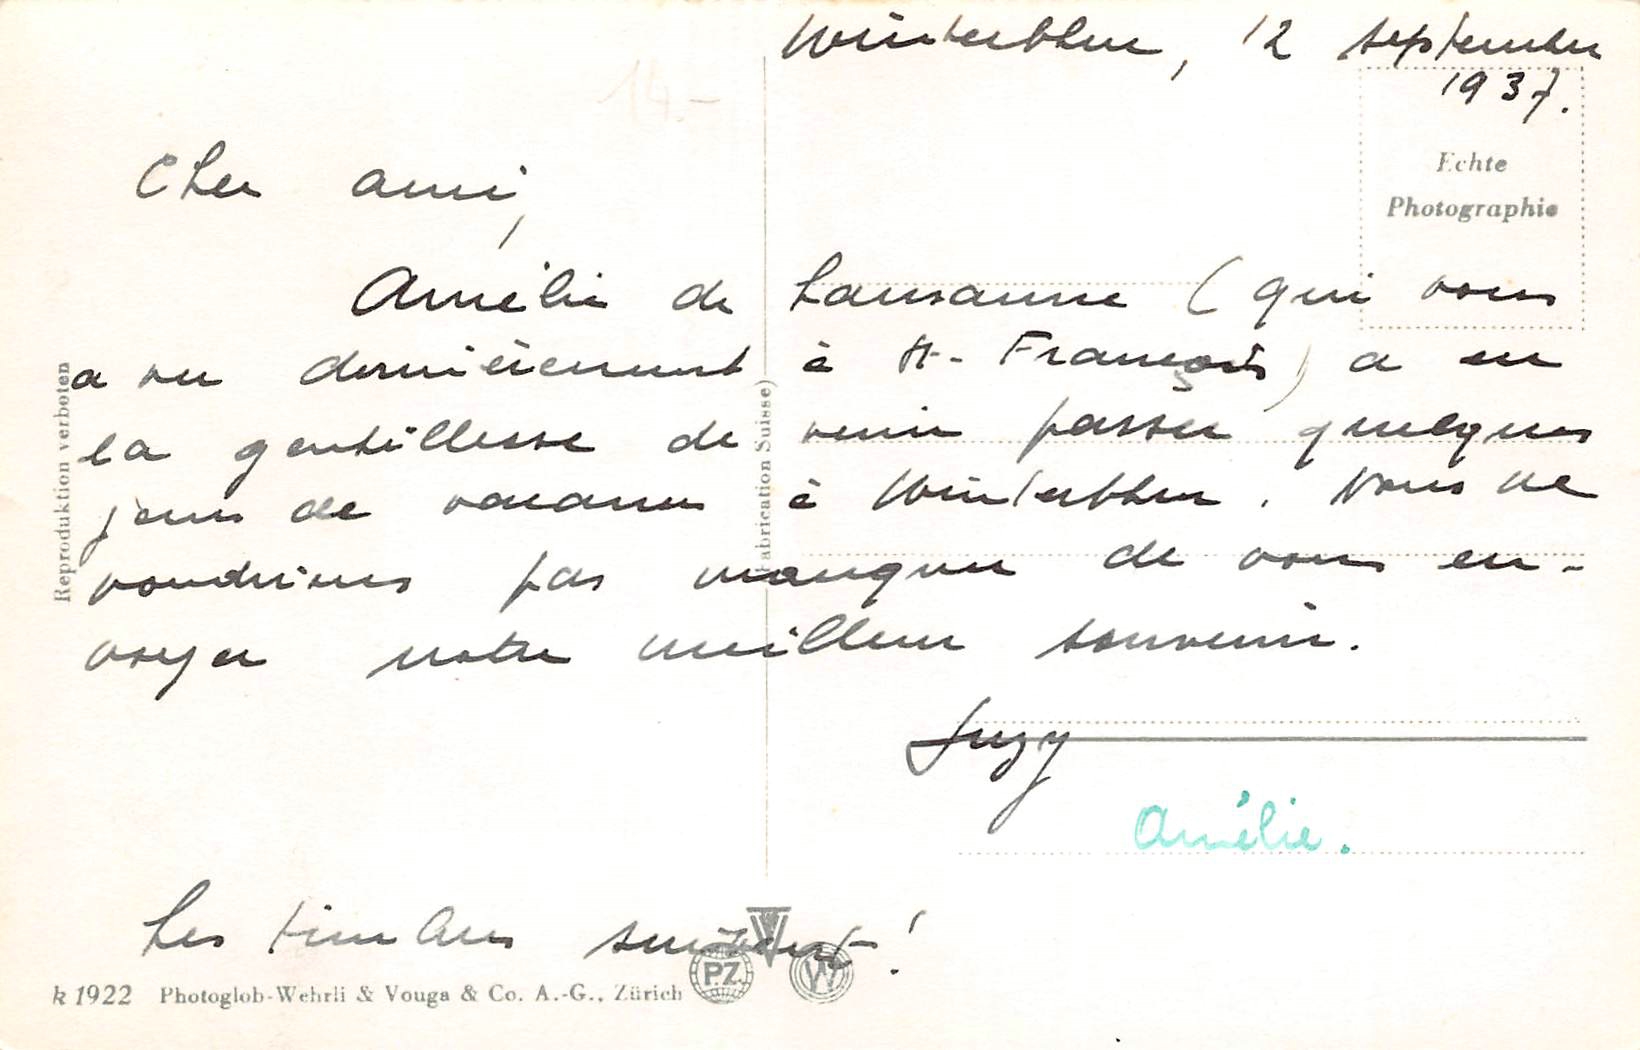 Winterthur, 12 septembre
1937.
14.-
Echte
Photographie
Cher ami,
Amélie de Lausanne (qui vous
a vu dernièrement à St-François) a eu
la gentillesse de venir passer quelques
jours de vacances à Winterthur. Nous ne
voudrions pas manquer de vous en-
voyer notre meilleur souvenir.
Suzy
Amélie.
Les timbres suivent!
Reproduktion verboten
(Fabrication Suisse)
P.Z. V W
k 1922 Photoglob-Wehrli & Vouga & Co. A.-G., Zürich